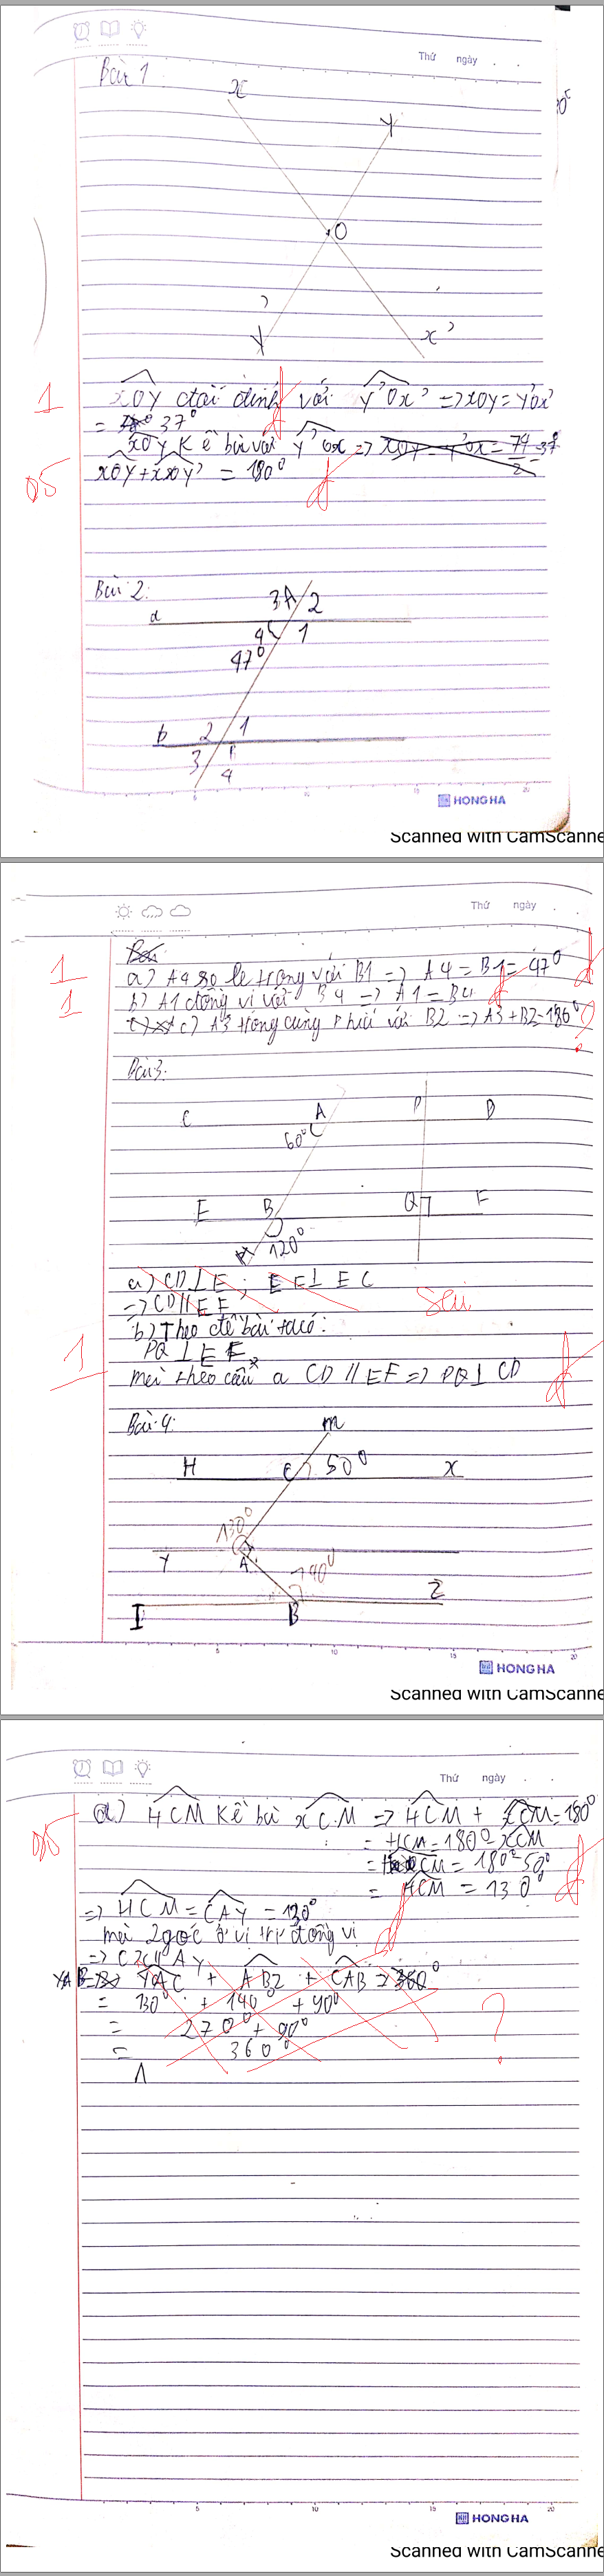 Thứ ngày . .
Bài 1
x
y
O
y'
x'
1
xOy đối đỉnh với y'Ox' => xOy = y'Ox'
= 37⁰
xOy kề bù với y'Ox => xOy = y'Ox = 74/2 = 37
05
xOy + xOy' = 180⁰
Bài 2:
3 A 2
a
4 1
47⁰
b 2 1
3 4
HONG HA
Scanned with CamScanne
Thứ ngày . .
1
a) A4 so le trong với B1 => A4 = B1 = 47⁰
1
b) A1 đồng vị với B4 => A1 = B4
c) A3 trong cùng phía với B2 => A3 + B2 = 180⁰ ?
Bài 3:
C A P D
60⁰
E B Q F
120⁰
a) CD ⊥ E ; EF ⊥ EC
=> CD // EF
Sai
b) Theo đề bài ta có:
1
PQ ⊥ EF
mà theo câu a CD // EF => PQ ⊥ CD
Bài 4:
m
H C 50⁰ x
130⁰
y A
140⁰
I B z
5 10 15 20
HONG HA
Scanned with CamScanne
Thứ ngày . .
a) HCM kề bù xCM => HCM + xCM = 180⁰
= HCM = 180⁰ - xCM
= HCM = 180⁰ - 50⁰
= HCM = 130⁰
=> HCM = CAY = 130⁰
mà 2 góc ở vị trí đồng vị
=> Cx // Ay
YAC + ABZ + CAB = 360⁰
= 130⁰ + 140⁰ + 90⁰
= 270⁰ + 90⁰
?
= 360⁰
5 10 15 20
HONG HA
Scanned with CamScanne